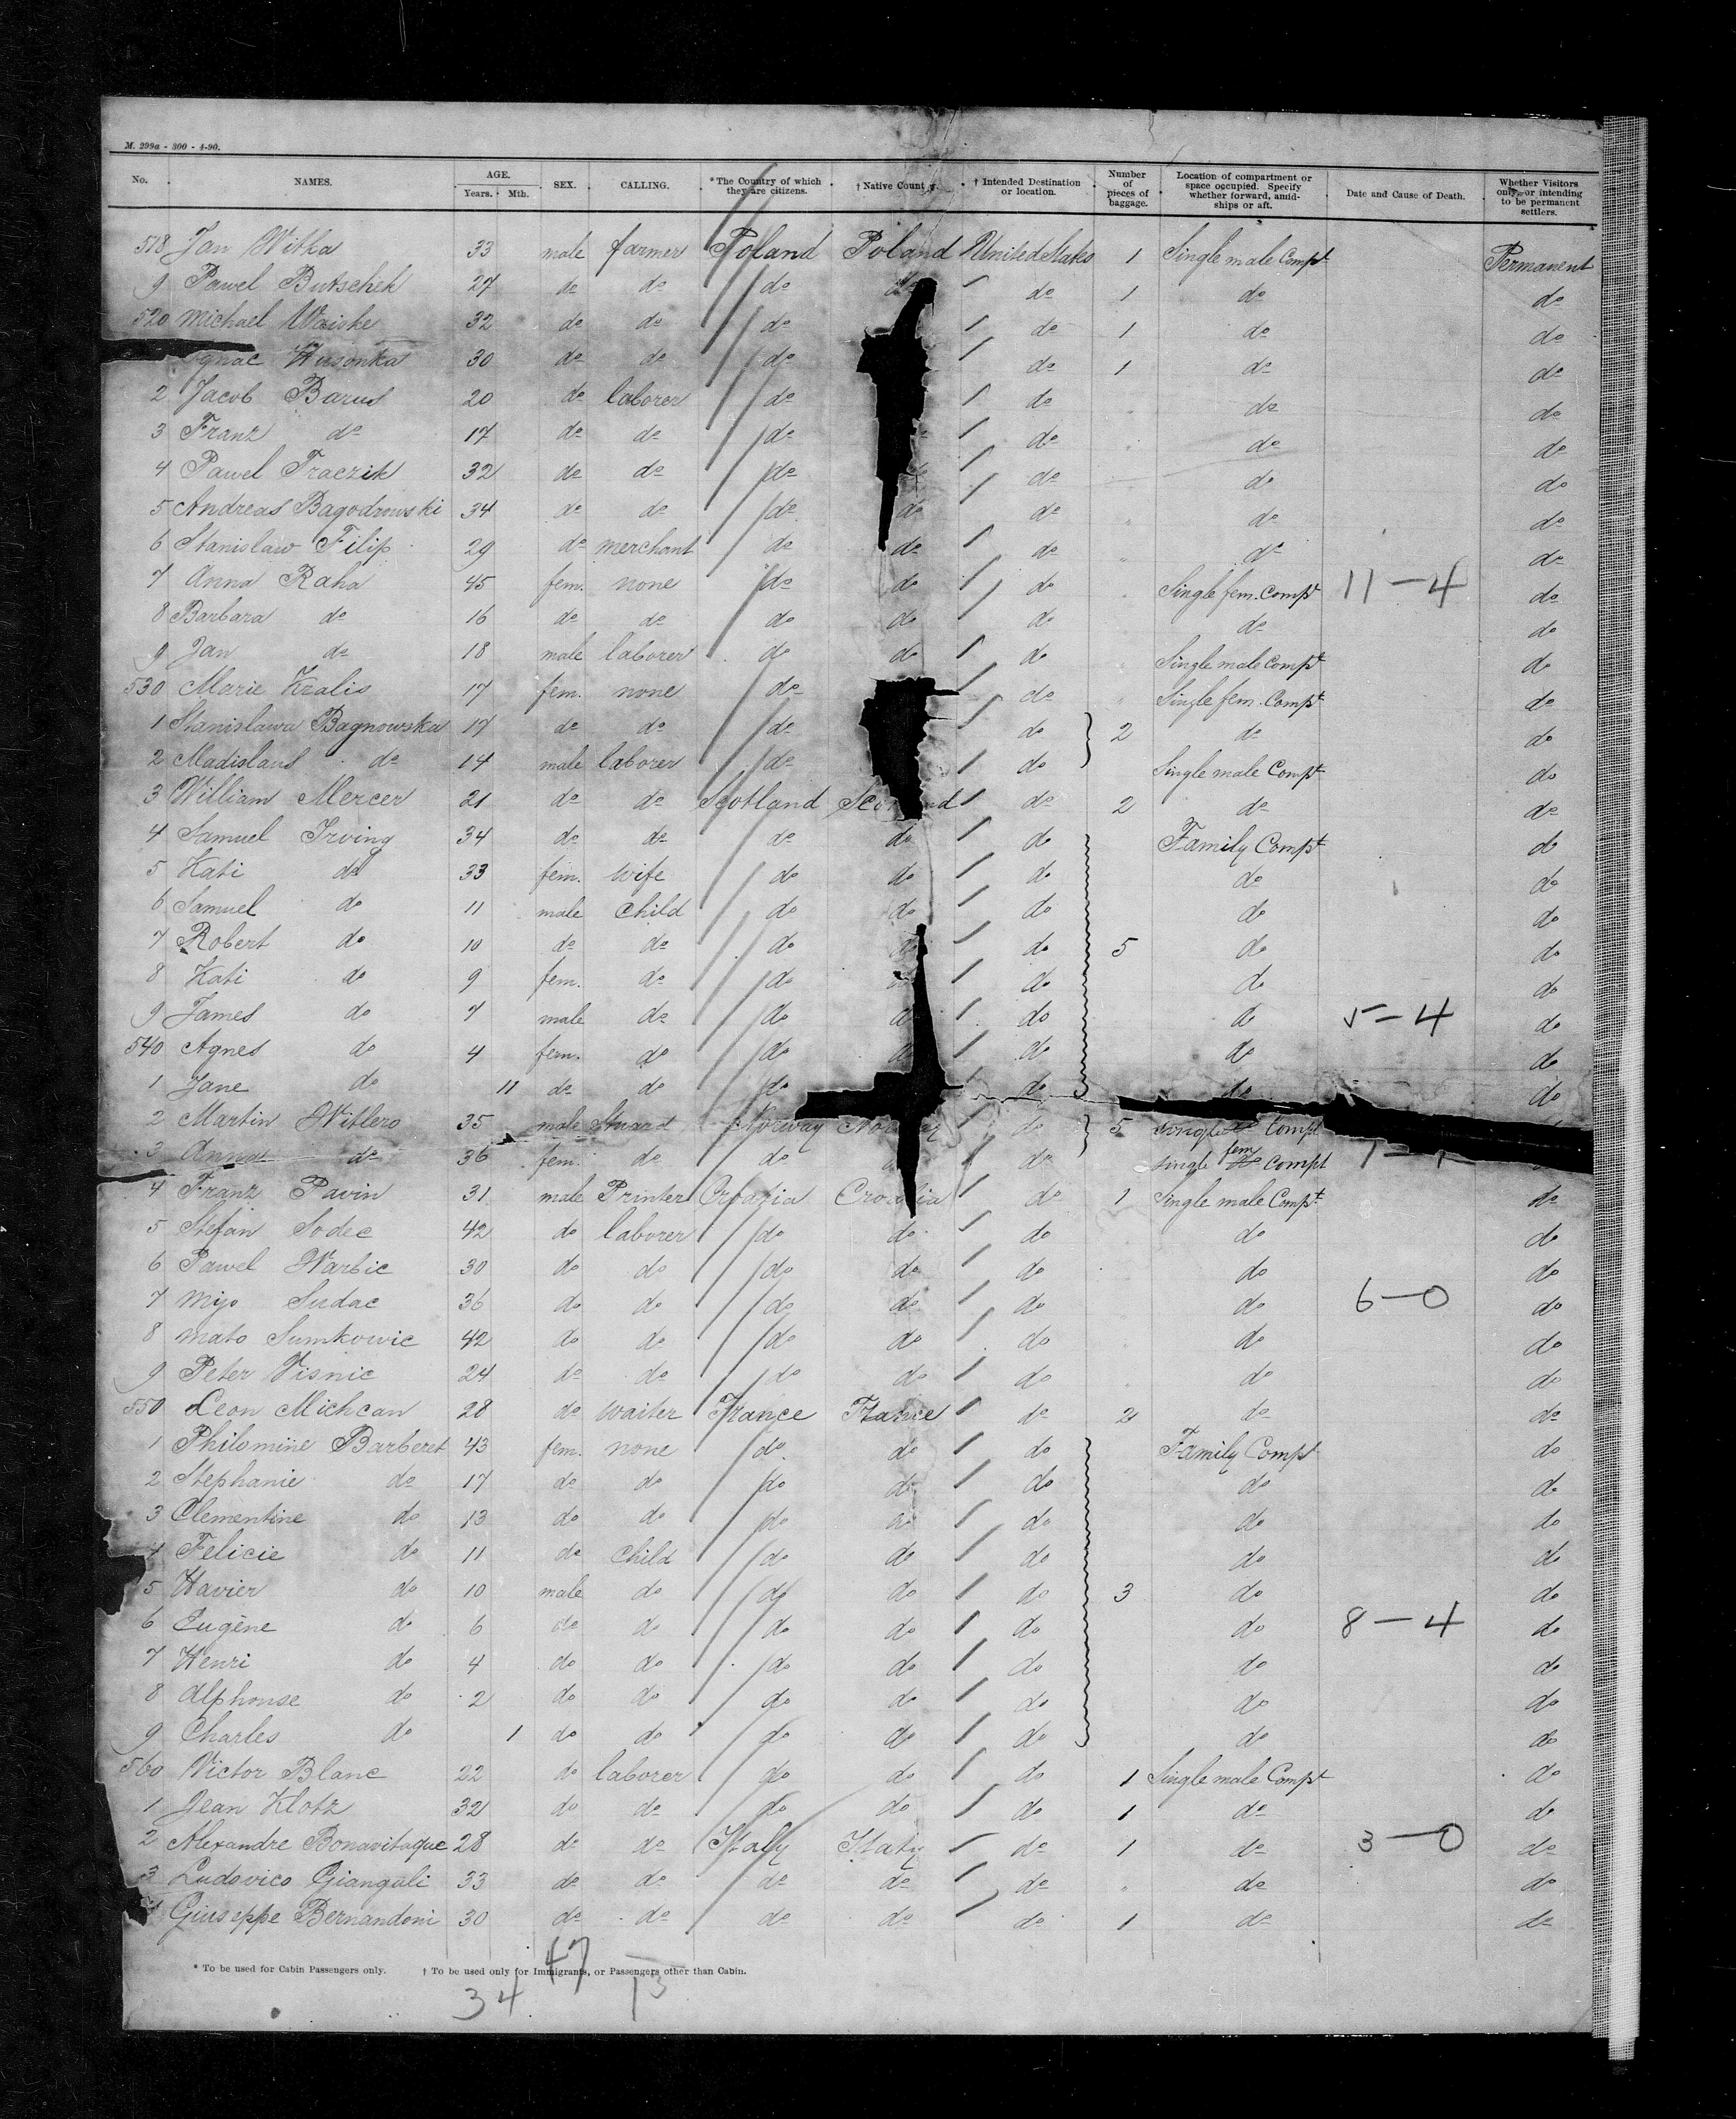 M. 299a - 300 - 4-90.
No. NAMES. AGE. Years. Mth. SEX. CALLING. * The Country of which they are citizens. † Native Country. † Intended Destination or location. Number of pieces of baggage. Location of compartment or space occupied. Specify whether forward, amidships or aft. Date and Cause of Death. Whether Visitors only, or intending to be permanent settlers.
518 Jan Witka 33 male farmer Poland Poland United States 1 Single male Compt Permanent
9 Pawel Butschek 27 do do do do 1 do do
520 Michael Waiske 32 do do do do 1 do do
Ignac Wusonka 30 do do do do 1 do do
2 Jacob Barus 20 do laborer do do " do do
3 Franz do 17 do do do do " do do
4 Pawel Traczik 32 do do do do " do do
5 Andreas Bagodrowski 34 do do do do do " do do
6 Stanislaw Filip 29 do merchant do do do " do do
7 Anna Raha 45 fem. none do do do " Single fem. Compt 11-4 do
8 Barbara do 16 do do do do do do do
9 Jan do 18 male laborer do do do " Single male Compt do
530 Marie Kralis 17 fem. none do do " Single fem. Compt do
1 Stanislawa Bagnowska 17 do do do do 2 do do
2 Madislaus do 14 male laborer do do Single male Compt do
3 William Mercer 21 do do Scotland Scotland do 2 do do
4 Samuel Irving 34 do do do do do Family Compt do
5 Kati do 33 fem. wife do do do do do
6 Samuel do 11 male child do do do do do
7 Robert do 10 do do do do do 5 do do
8 Kati do 9 fem. do do do do do
9 James do 7 male do do do do do 5-4 do
540 Agnes do 4 fem. do do do do do
1 Jane do 11 do do do do do do
2 Martin Witlero 35 male Stuard Norway Norway do 5 single Compt
3 Anna do 36 fem. do do do single fem Compt
4 Franz Pavin 31 male Printer Croatia Croatia do 1 Single male Compt do
5 Stefan Sodec 42 do laborer do do do do do
6 Pawel Warbic 30 do do do do do do do
7 Mijo Sudac 36 do do do do do do 6-0 do
8 Mato Sumkowic 42 do do do do do do do
9 Peter Visnic 24 do do do do do do do
550 Leon Michcan 28 do waiter France France do 2 do do
1 Philomine Barberet 43 fem. none do do do Family Compt do
2 Stephanie do 17 do do do do do do do
3 Clementine do 13 do do do do do do do
4 Felicie do 11 do child do do do do do
5 Xavier do 10 male do do do do 3 do do
6 Eugène do 6 do do do do do do 8-4 do
7 Henri do 4 do do do do do do do
8 Alphonse do 2 do do do do do do do
9 Charles do 1 do do do do do do do
560 Victor Blanc 22 do laborer do do do 1 Single male Compt do
1 Jean Klotz 32 do do do do do 1 do do
2 Alexandre Bonavitaque 28 do do Italy Italy do 1 do 3-0 do
3 Ludovico Gianguli 33 do do do do do " do do
4 Giuseppe Bernandoni 30 do do do do do 1 do do
* To be used for Cabin Passengers only. † To be used only for Immigrants, or Passengers other than Cabin.
47
34 13